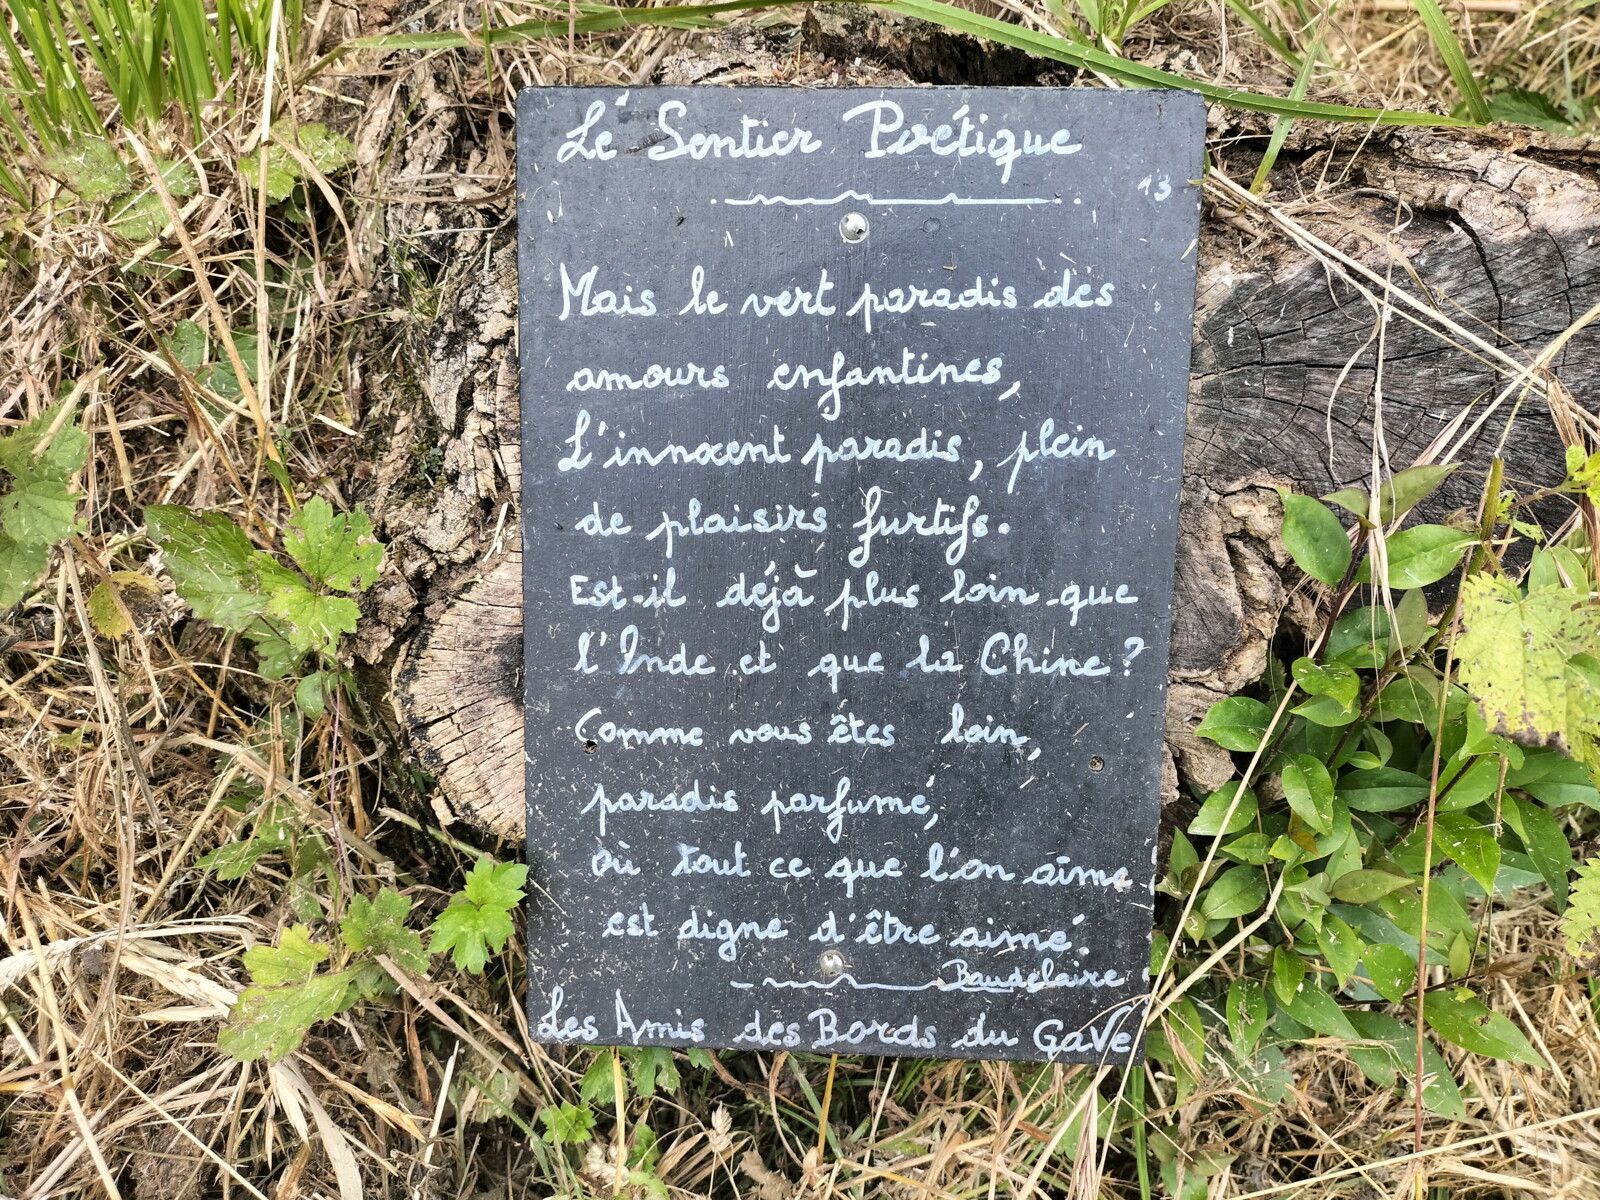 Le Sentier Poétique
13
Mais le vert paradis des
amours enfantines,
L'innocent paradis, plein
de plaisirs furtifs.
Est-il déjà plus loin que
l'Inde et que la Chine?
Comme vous êtes loin,
paradis parfumé,
où tout ce que l'on aime
est digne d'être aimé.
Baudelaire
Les Amis des Bords du Gave